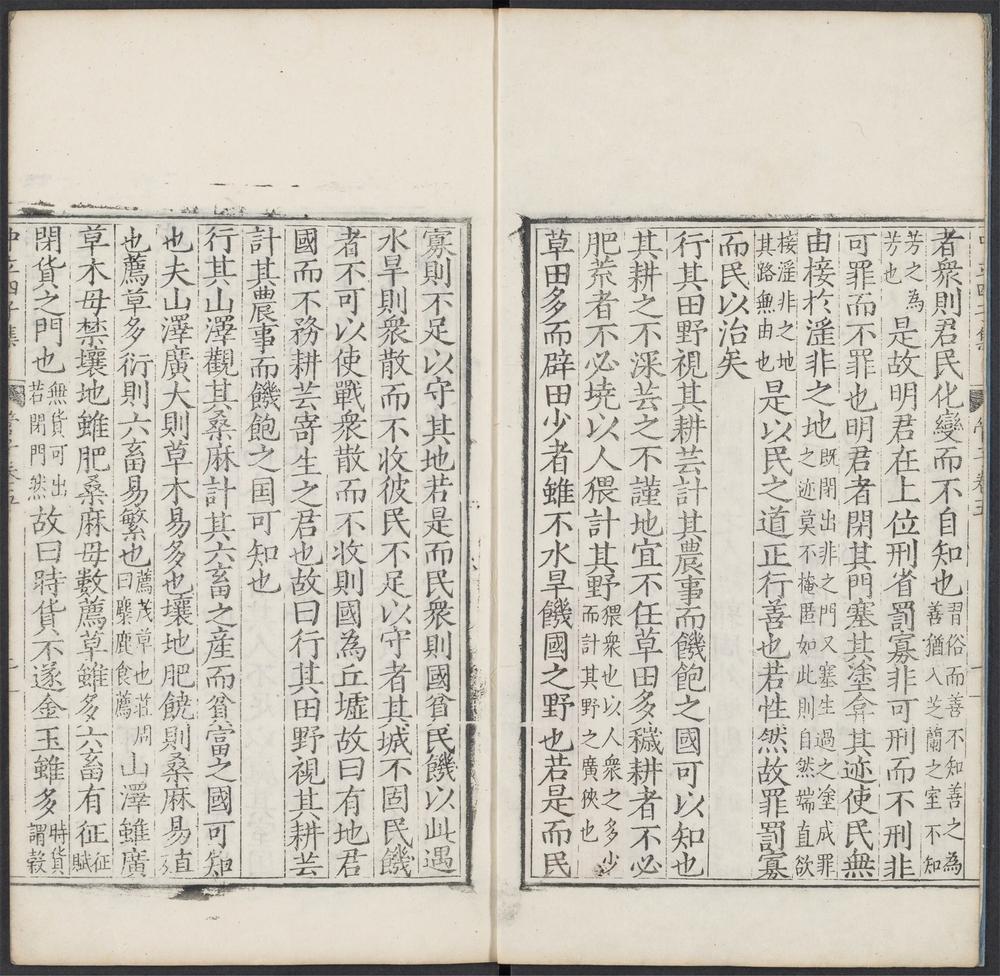 者衆則君民化變而不自知也習俗而善不知善之為善猶入芝蘭之室不知
芳之為芳也是故明君在上位刑省罰寡非可刑而不刑非
可罪而不罪也明君者閉其門塞其塗弇其迹使民無
由接於淫非之地既閉出非之門又塞生過之塗成罪之迹莫不掩匿如此則自然端直欲
接淫非之地其路無由也是以民之道正行善也若性然故罪罰寡
而民以治矣
行其田野視其耕芸計其農事而饑飽之國可以知也
其耕之不深芸之不謹地宜不任草田多穢耕者不必
肥荒者不必墝以人猥計其野猥衆也以人衆之多少而計其野之廣狹也
草田多而辟田少者雖不水旱饑國之野也若是而民
寡則不足以守其地若是而民衆則國貧民饑以此遇
水旱則衆散而不收彼民不足以守者其城不固民饑
者不可以使戰衆散而不收則國為丘墟故曰有地君
國而不務耕芸寄生之君也故曰行其田野視其耕芸
計其農事而饑飽之国可知也
行其山澤觀其桑麻計其六畜之產而貧富之國可知
也夫山澤廣大則草木易多也壤地肥饒則桑麻易直
也薦草多衍則六畜易繁也薦茂草也莊周曰麋鹿食薦山澤雖廣
草木毋禁壤地雖肥桑麻毋數薦草雖多六畜有征征賦
閉貨之門也無貨可出若閉門然故曰時貨不遂金玉雖多時貨謂穀